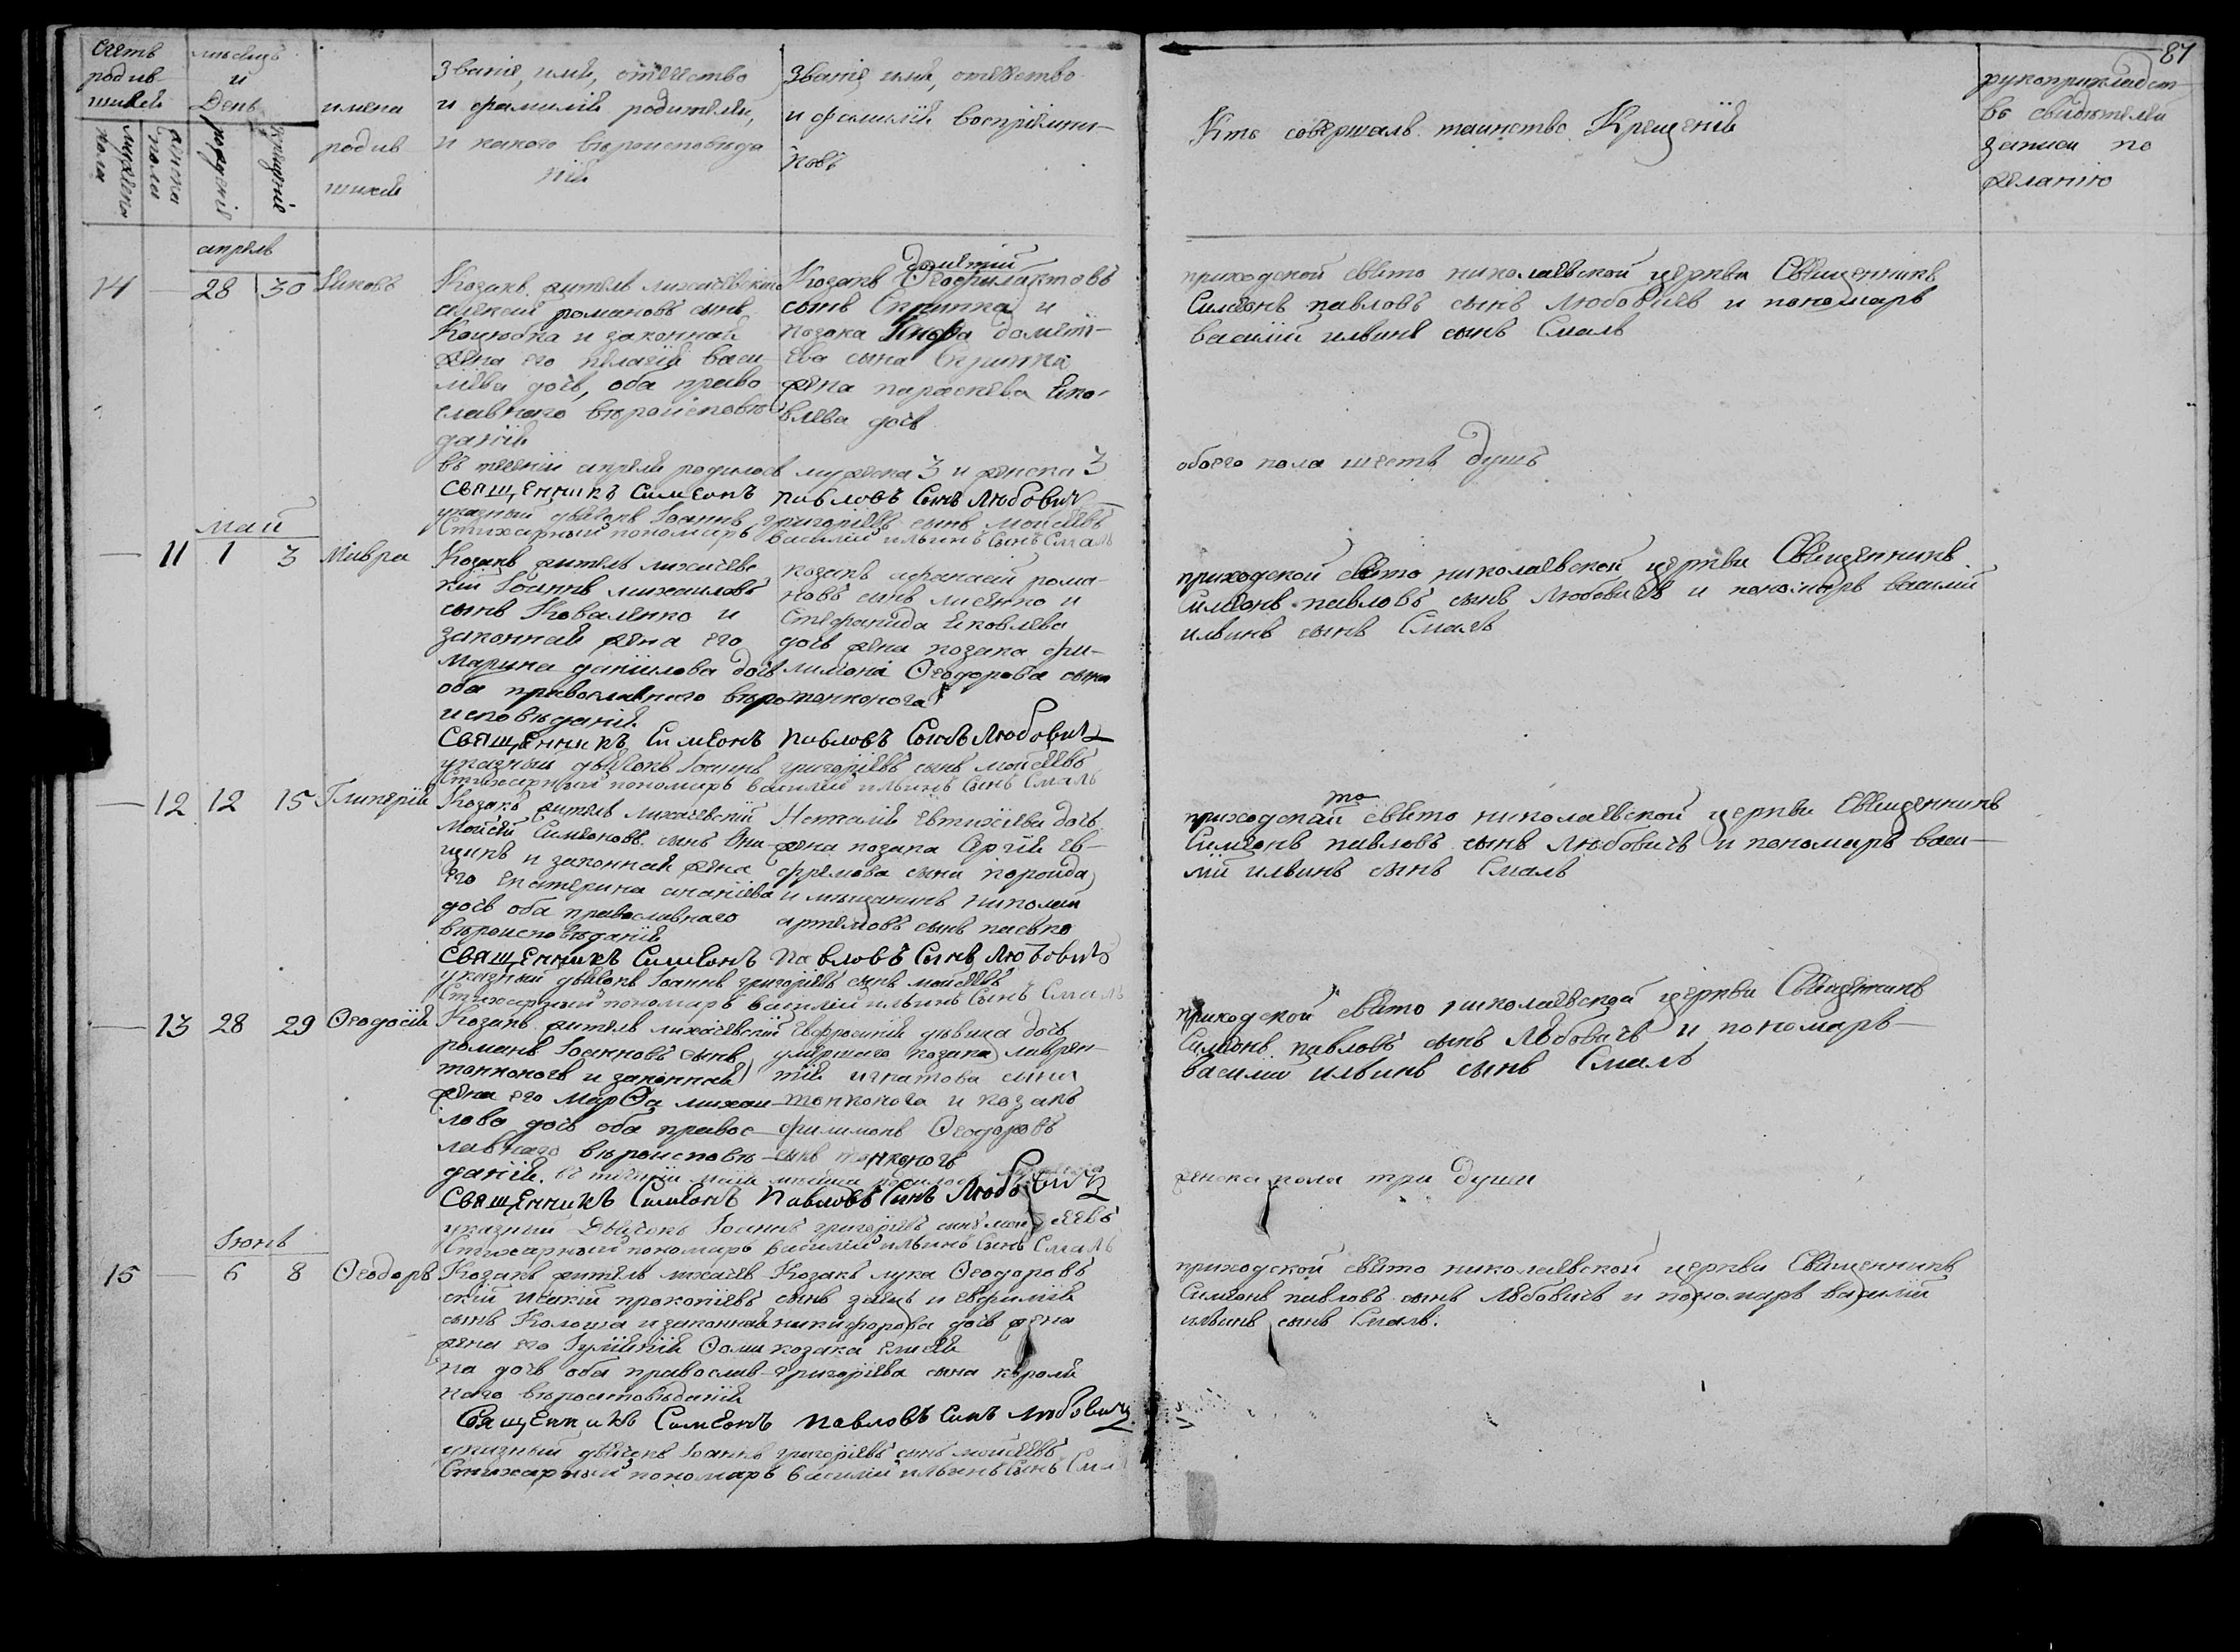 87
Счетъ
родив
шихся
мужеска
пола
женска
пола
мѣсяцъ
и
День
рожденія
крещенія
имена
родив
шихся
Званіе, имя, отечество
и фамилія родителей,
и какого вѣроисповѣда
нія
Званіе имя, отечество
и фамилія воспріемни-
ковъ
Кто совершалъ таинство Крещенія
рукоприкладст
во свидетелей
записи по
желанію
апрель
14 — 28 30 Іяковъ
Козакъ житель лихачевскій
алексій романовъ сынъ
Коцюбка и законная
жена его пелагія васи
лева дочь, оба право
славного вѣроисповѣ
данія
дометій
Козакъ Ѳеофилактовъ
сынъ Скрипка и
козака домет-
ева сына Скрипки
жена параскева Яко-
влева дочь
приходской свято николаевской церкви Священникъ
Симеонъ павловъ сынъ Любовичъ и пономарь
василій ильинъ сынъ Смаль
въ теченіи апреля родилось мужеска 3 и женска 3
обоего пола шесть душъ
священникъ Симеонъ павловъ Сынъ Любович
указный дьячокъ Іоаннъ григоріевъ сынъ моисеевъ
Стихарный пономарь василій ильинъ Сынъ Смаль
май
— 11 1 3 Мавра
Козакъ житель лихачевс
кій Іоаннъ михаиловъ
сынъ Коваленко и
законная жена его
Марина даніилова дочь
оба православного вѣро
исповѣданія
козакъ афанасій рома
новъ сынъ лисенко и
Стефанида Яковлева
дочь жена козака фи-
лимона Ѳеодорова сына
тонконога
приходской свято николаевской церкви Священникъ
Симеонъ павловъ сынъ Любовичъ и пономарь василій
ильинъ сынъ Смаль
священникъ Симеонъ павловъ Сынъ Любович
указный дьячокъ Іоаннъ григоріевъ сынъ моисеевъ
Стихарный пономарь василій ильинъ Сынъ Смаль
— 12 12 15 Гликерія
Козакъ житель лихачевскій
Моисей Симеоновъ сынъ Они-
щикъ и законная жена
его екатерина ананіева
дочь оба православного
вѣроисповѣданія
Наталія евтихіева дочь
жена козака Сергія ев-
фремова сына
и мѣщанинъ николай
артемовъ сынъ пасько
то
приходской свято николаевской церкви Священникъ
Симеонъ павловъ сынъ Любовичъ и пономарь васи-
лій ильинъ сынъ Смаль
священникъ Симеонъ павловъ Сынъ Любович
указный дьячокъ Іоаннъ григоріевъ сынъ моисеевъ
Стихарный пономарь василій ильинъ Сынъ Смаль
— 13 28 29 Ѳеодосія
Козакъ житель лихачевскій
романъ Іоанновъ сынъ
тонконогъ и законная
жена его МарѲа михаи
лова дочь оба правос-
лавного вѣроисповѣ-
данія.
Евфросинія дѣвица дочь
умершаго козака лаврен-
тія игнатова сына
тонконога и козакъ
филимонъ Ѳеодоровъ
сынъ тонконогъ
приходской свято николаевской церкви Священникъ
Симеонъ павловъ сынъ Любовичъ и пономарь
василій ильинъ сынъ Смаль
въ теченіи мая месяца родилось
женска пола три души
священникъ Симеонъ павловъ Сынъ Любович
указный Дьячокъ Іоаннъ григоріевъ сынъ моисеевъ
Стихарный пономарь василій ильинъ Сынъ Смаль
Іюнь
15 — 6 8 Ѳеодоръ
Козакъ житель лихачев
скій Исакій прокопіевъ
сынъ Колоша и законная
жена его Іуліянія Ѳоми
на дочь оба православ-
ного вѣроисповѣданія
Козакъ лука Ѳеодоровъ
сынъ заецъ и евфимія
никифорова дочь жена
козака елисея
григоріева сына короля
приходской свято николаевской церкви Священникъ
Симеонъ павловъ сынъ Любовичъ и пономарь василій
ильинъ сынъ Смаль.
Священникъ Симеонъ павловъ сынъ Любович
указный дьячокъ Іоаннъ григоріевъ сынъ моисеевъ
Стихарный пономарь василій ильинъ Сынъ Смал